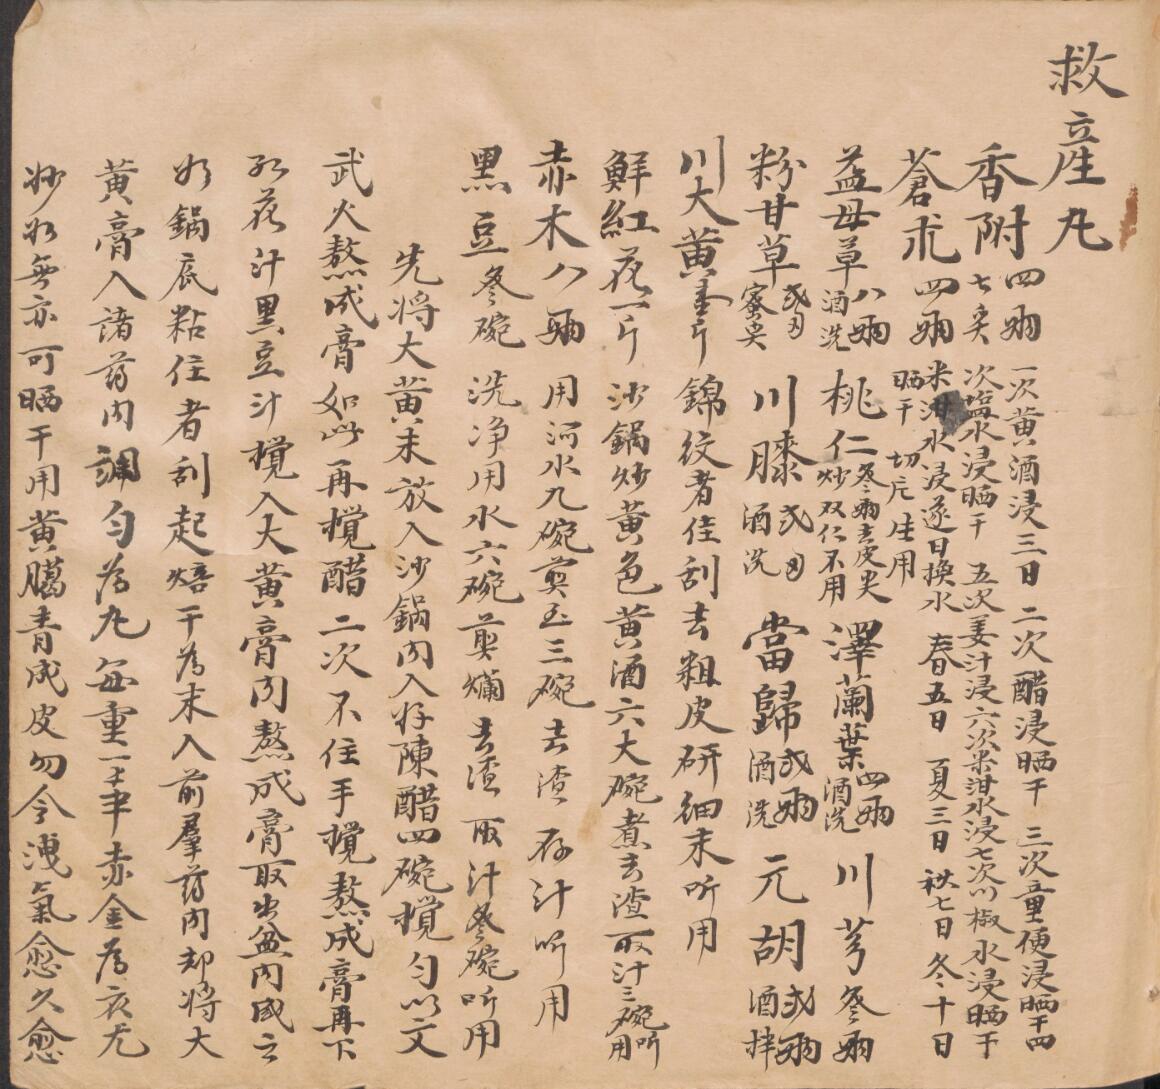 救産丸
香附四兩七炙 一次黄酒浸三日二次醋浸晒干三次童便浸晒干四次塩水浸晒干五次姜汁浸六次米泔水浸七次川椒水浸晒干
蒼朮四兩 米泔水浸逐日換水春五日夏三日秋七日冬十日晒干切片生用
益母草八兩酒洗 桃仁叁兩去皮尖炒双仁不用 澤蘭葉四兩酒洗 川芎叁兩
粉甘草弍刄蜜炙 川膝弍刄酒洗 當歸弍兩酒洗 元胡弍兩酒拌
川大黄壹斤錦紋者佳刮去粗皮研細末听用
鮮紅花一斤沙鍋炒黄色黄酒六大碗煮去渣取汁三碗听用
赤木八兩用河水九碗煎至三碗去渣存汁听用
黑豆叁碗洗净用水六碗煎爛去渣取汁叁碗听用
先将大黄末放入沙鍋内入好陳醋四碗攪匀以文
武火熬成膏如此再攪醋二次不住手攪熬成膏再下
紅花汁黑豆汁攪入大黄膏内熬成膏取出盆内盛之
如鍋底粘住者刮起焙干為末入前羣药内却將大
黄膏入諸药内調匀為丸每重一𠦑半赤金為衣尤
妙如無亦可晒干用黄臈青成皮勿令洩氣愈久愈